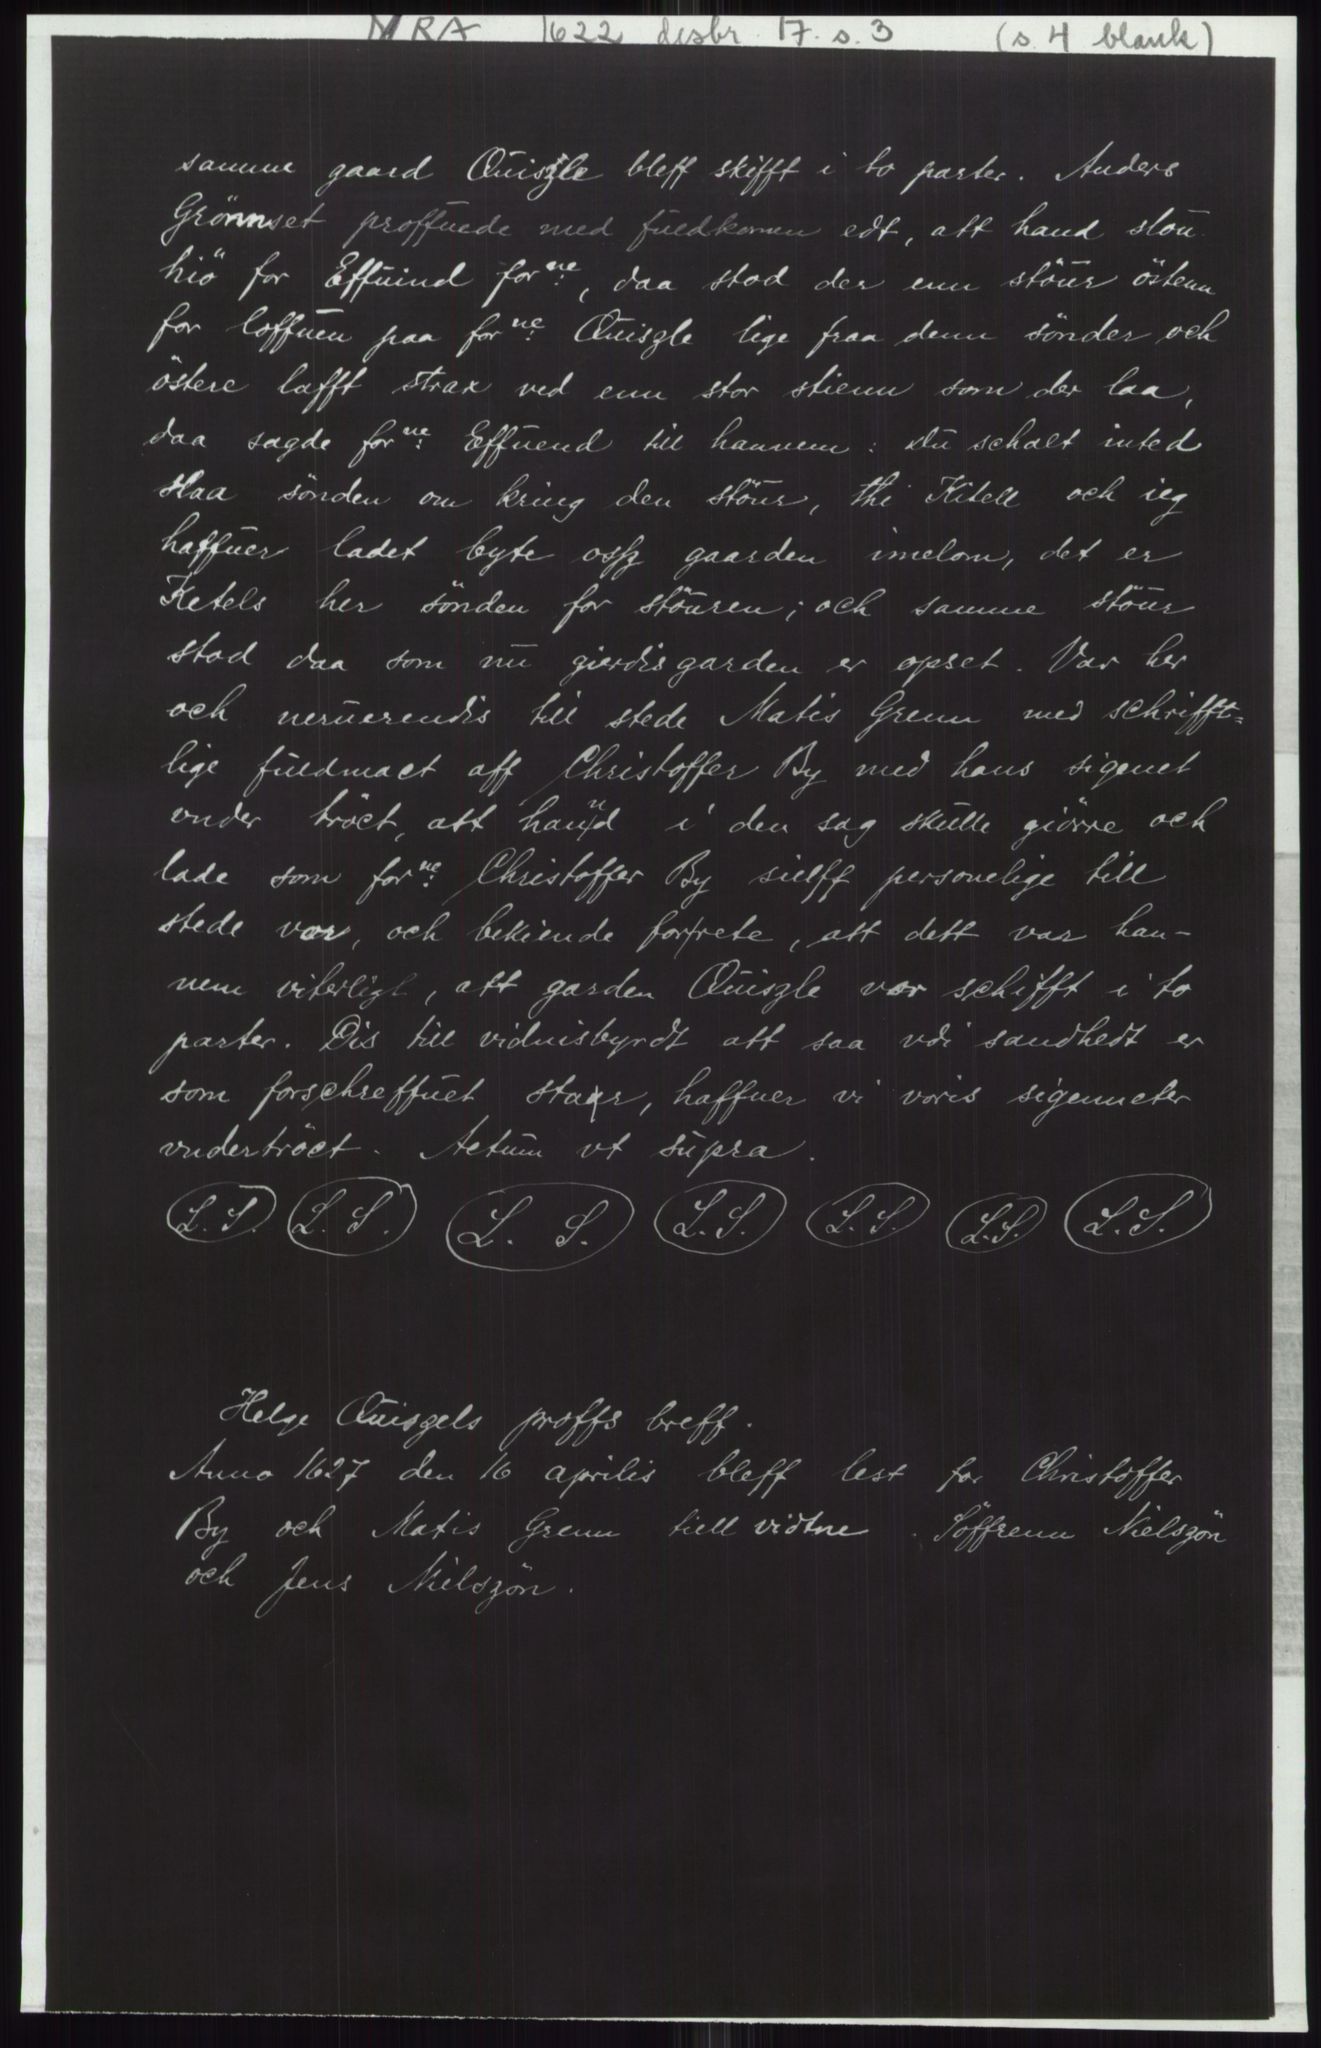 NRA 1622 desbr. 17. s. 3 (s. 4 blank)
samme gaard Quiszle bleff skifft i to parter. Anders
Grönnset proffuede med fuldkomen edt, att hand slou
hiö for Effuind forne:, daa stod der enn stöur östenn
for loffuen paa forne: Quiszle lige fraa denn sönder och
östere lafft strax ved enn stor stienn som der laa,
daa sagde forne: Effuend till hannem: Du schalt inted
slaa sönden om kring den stöur, thi Kitell och ieg
haffuer ladet byte ossz gaarden imelom, det er
Ketels her sönden for stöuren; och samme stöur
stod daa som nu gierdisgarden er opset. Var her
och neruerendis till stede Matis Grenn med schrifft=
lige fuldmact aff Christoffer By med hans signet
vnder tröct, att hannd i den sag skulle giörre och
lade som forne: Christoffer By sielff personelige till
stede var, och bekiende forrete, att dett var han-
nem viterligt, att garden Quiszle var schifft i to
parter. Dis till vidnisbyrdt att saa vdi sandhedt er
som forschreffuet staar, haffuer vi voris signneter
vndertröct. Actum vt supra.
L. S. L. S. L. S. L. S. L. S. L. S. L. S.
Helge Quiszels proffs breff.
Anno 1627 den 16 aprilis bleff lest for Christoffer
By och Matis Grenn till vidtne. Söffrenn Nielszön
och Jens Nielszön.